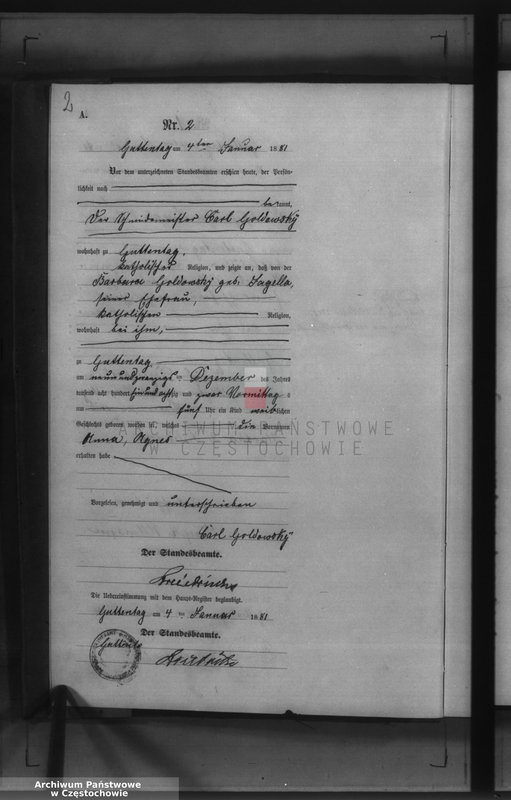 2
A.
Nr. 2
Guttentag am 4ten Januar 1881
Vor dem unterzeichneten Standesbeamten erschien heute, der Persön-
lichkeit nach
bekannt,
Der Schmiedemeister Carl Goldowsky
wohnhaft zu Guttentag,
katholischer Religion, und zeigte an, daß von der
Barbara Goldowsky geb.
seiner Ehefrau,
katholischen Religion,
wohnhaft bei ihm,
zu Guttentag
am neunundzwanzigsten Dezember des Jahres
tausend acht hundert und zwar Vormittag s
um fünf Uhr ein Kind weiblichen
Geschlechts geboren worden sei, welches die Vornamen
Anna, Agnes
erhalten habe
Vorgelesen, genehmigt und unterschrieben
Carl Goldowsky
Der Standesbeamte.
Die Uebereinstimmung mit dem Haupt-Register beglaubigt.
Guttentag am 4 ten Januar 1881
Der Standesbeamte.
ARCHIWUM PAŃSTWOWE
W CZĘSTOCHOWIE
Archiwum Państwowe
w Częstochowie